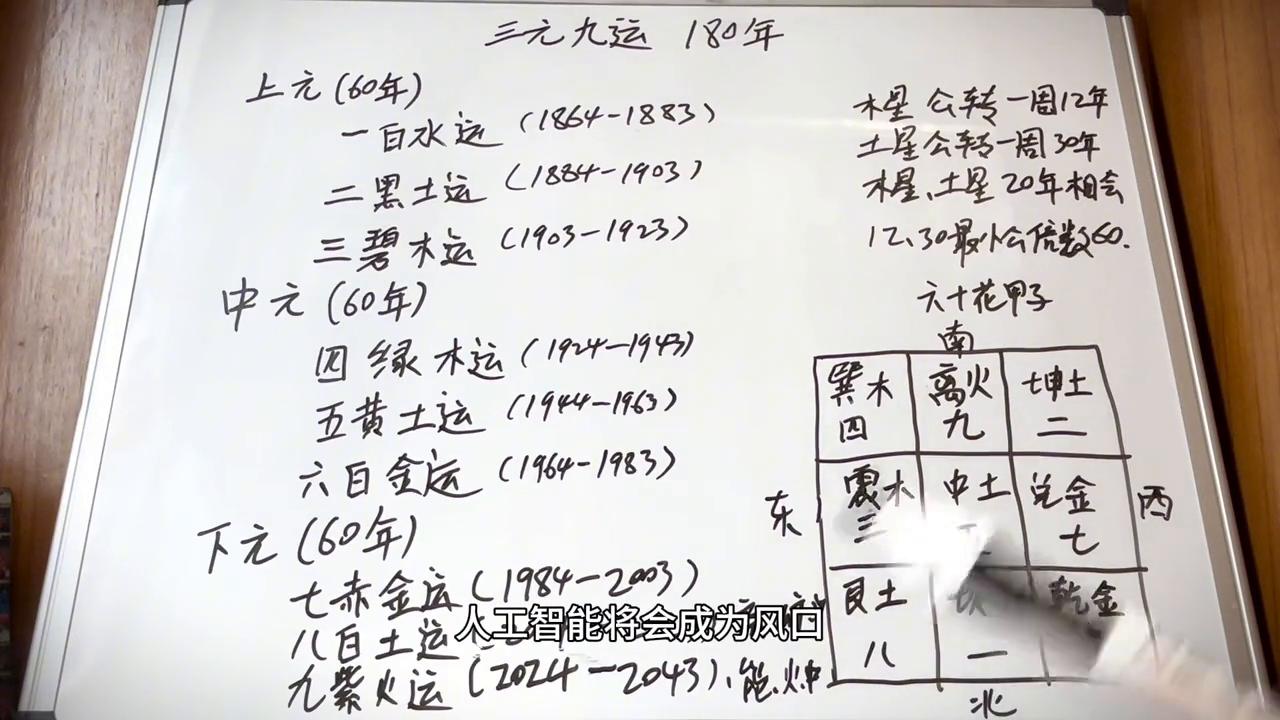 三元九运 180年
上元(60年)
一白水运 (1864-1883)
二黑土运 (1884-1903)
三碧木运 (1903-1923)
中元(60年)
四绿木运(1924-1943)
五黄土运(1944-1963)
六白金运(1964-1983)
下元(60年)
七赤金运(1984-2003)
八白土运
九紫火运(2024-2043)、能、火中
木星公转一周12年
土星公转一周30年
木星、土星20年相会
12、30最小公倍数60.
六十花甲子
南
巽木 离火 坤土
四 九 二
东
震木 中土 兑金
三 七
西
艮土 乾金
八 一
北
人工智能将会成为风口